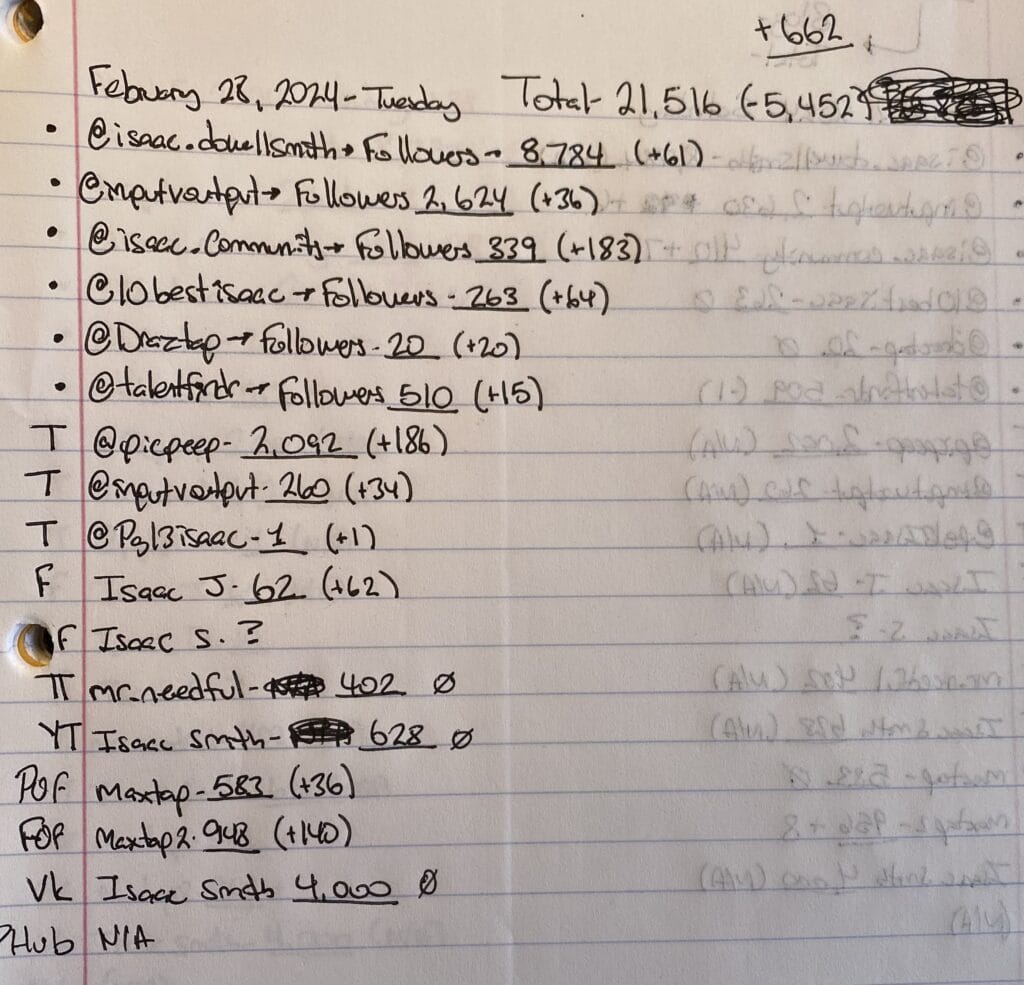 +662
February 28, 2024 - Tuesday Total - 21,516 (-5,452)
• @isaac.dowellsmith → Followers - 8,784 (+61)
• @inputvoutput → Followers 2,624 (+36)
• @isaac.community → Followers 339 (+183)
• @10bestisaac → Followers - 263 (+64)
• @Draztap → Followers - 20 (+20)
• @talentfindr → Followers 510 (+15)
T @picpeep - 2,092 (+186)
T @inputvoutput - 260 (+34)
T @Pgl3isaac - 1 (+1)
F Isaac J - 62 (+62)
F Isaac S. ?
TT mr.needful - 402 Ø
YT Isaac Smith - 628 Ø
POF Maxtap - 583 (+36)
FOF Maxtap2 - 948 (+140)
VK Isaac Smith 4,000 Ø
PHub N/A